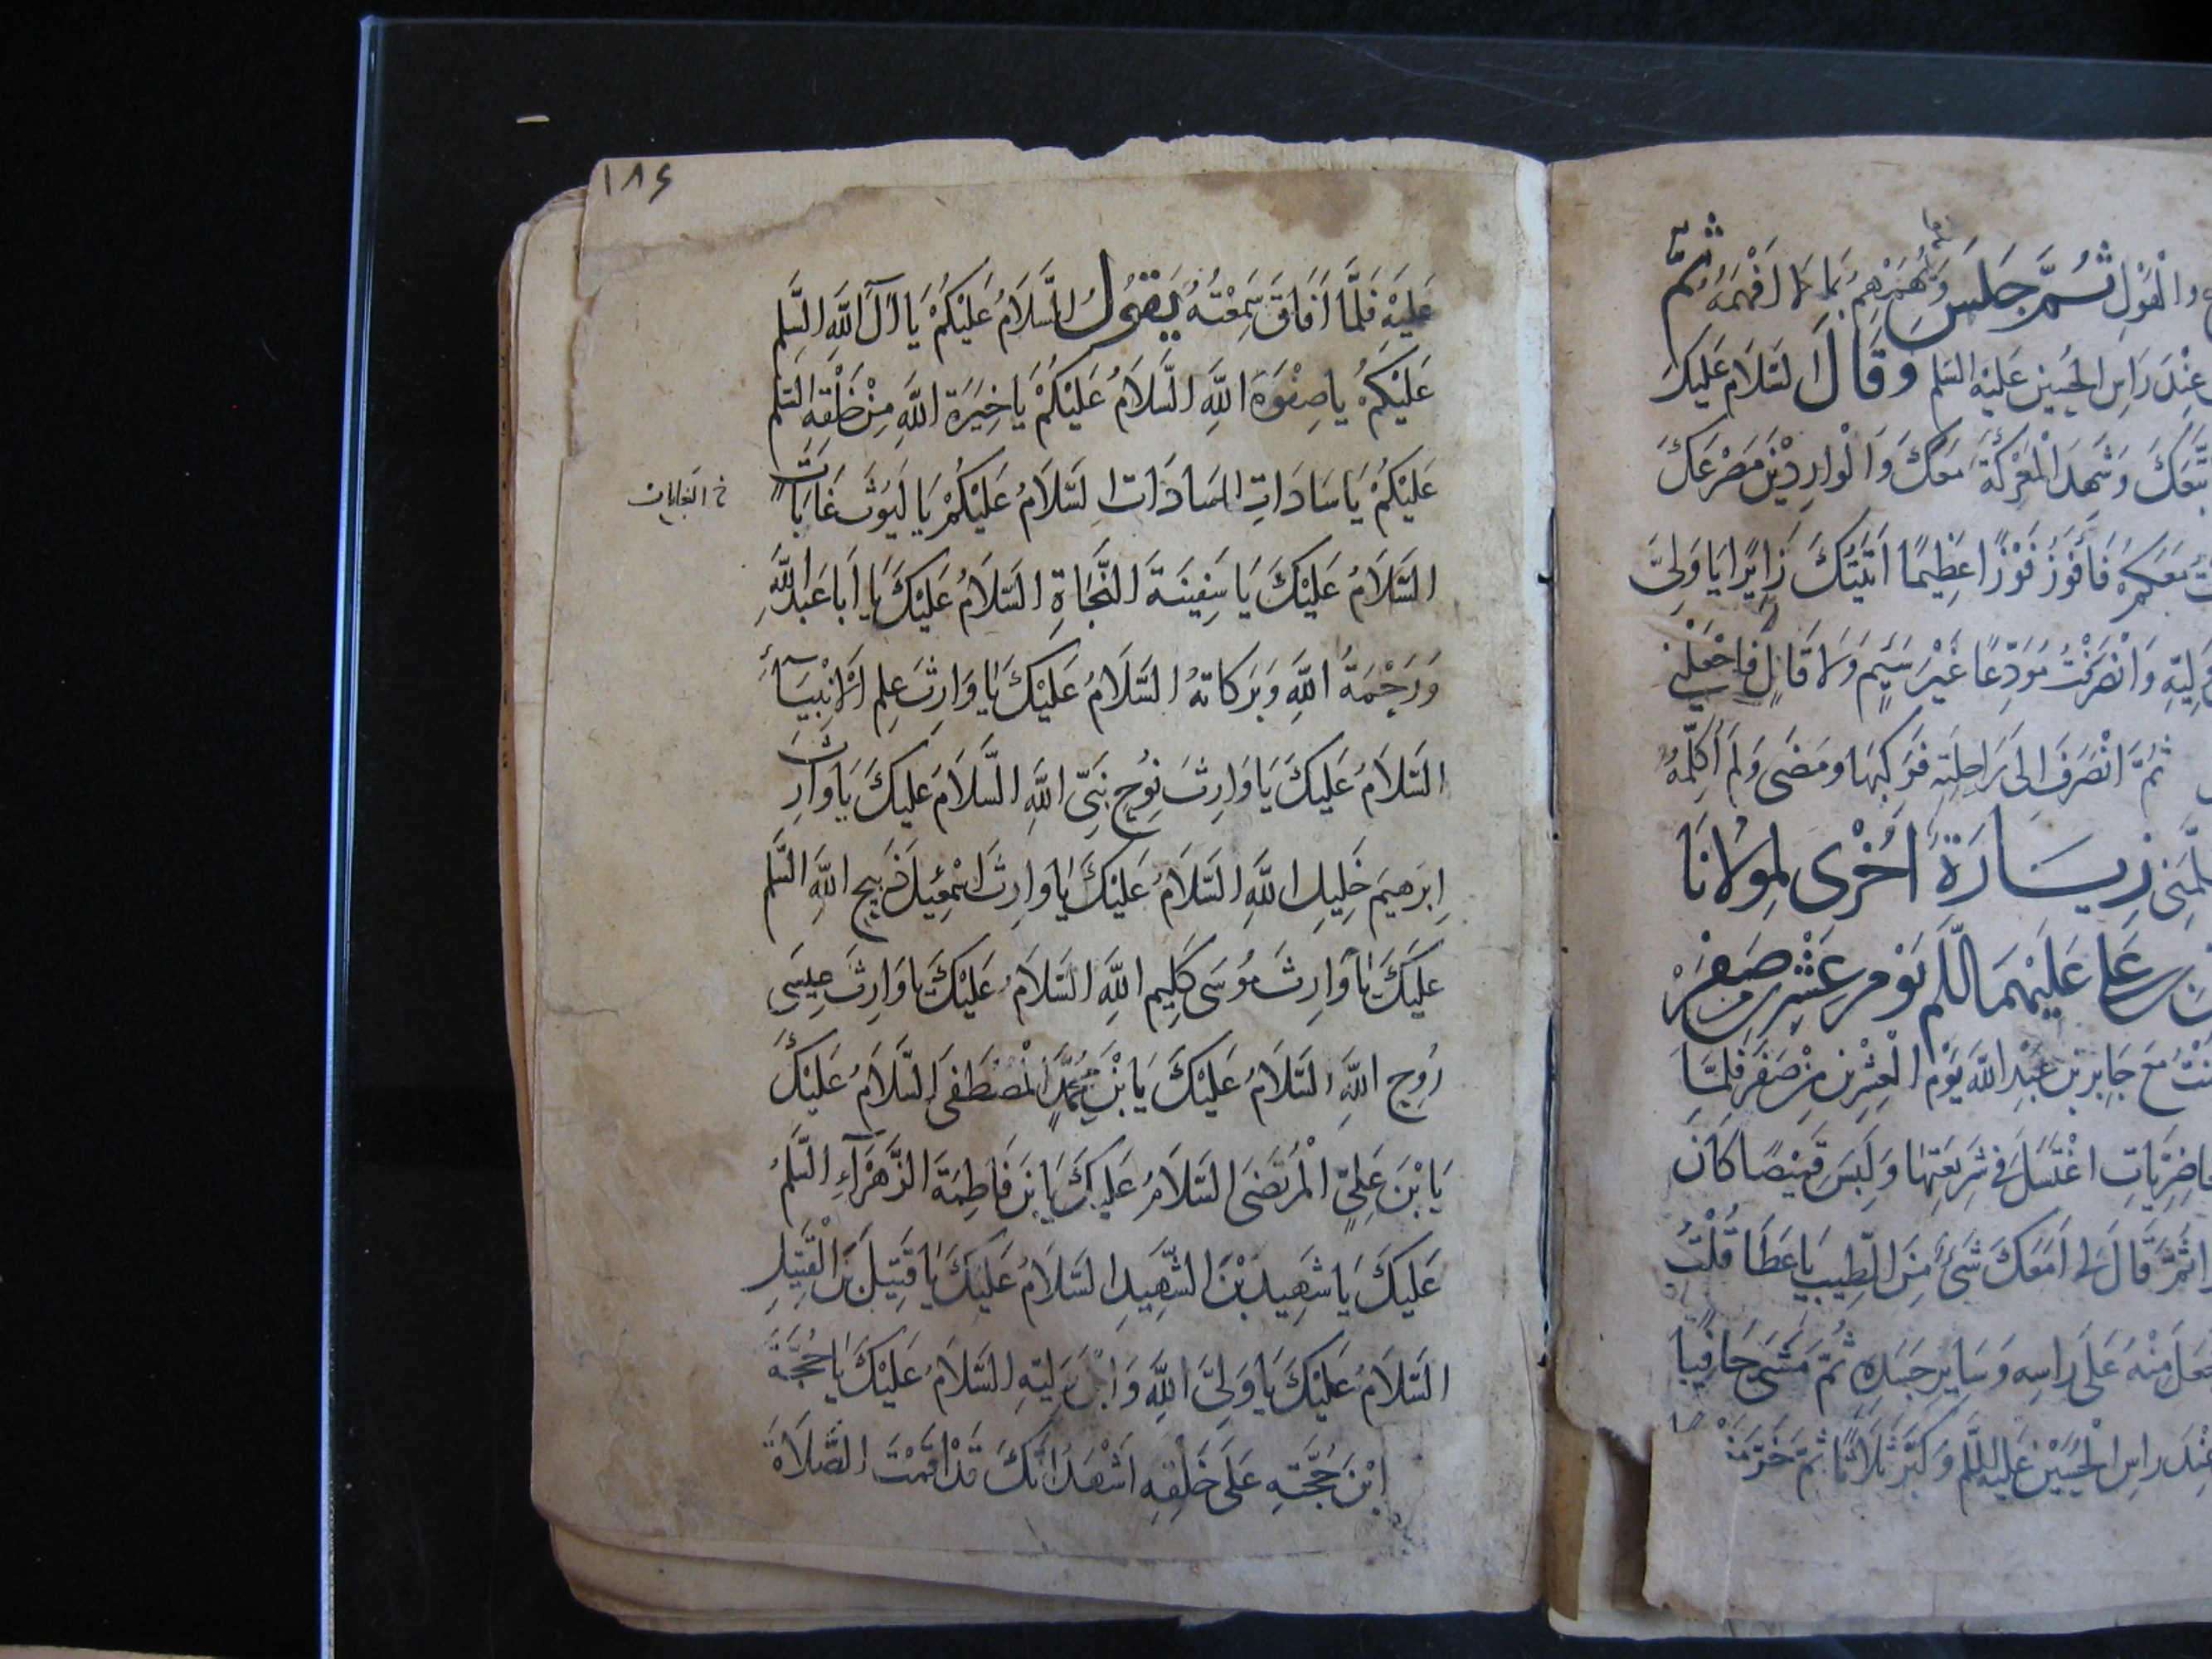 ثُمَّ
والْقَوْلِ ثُمَّ جَلَسَ وَهَمْهَمَ بِمَا لَا افْهَمُهُ
عِنْدَ رَاسِ الحُسَيْنِ عَلَيْهِ السّلم وَقَالَ السَّلَامُ عَلَيْكَ
وَشَهِدَ الْمَعْرِكَةَ مَعَكَ وَالْوَارِدِيْنَ مَصْرَعَكَ
مَعَكُمْ فَاَفُوزَ فَوْزًا عَظِيمًا اَتَيْتُكَ زَايِرًا يَا وَلِيَّ
وَانْصَرَفْتُ مُوَدِّعًا غَيْرَ سَئِمٍ وَلَا قَالٍ فَاجْعَلْنِي
ثُمَّ انْصَرَفَ اِلَى رَاحِلَتِهِ فَرَكِبَهَا وَمَضَى وَلَمْ اُكَلِّمْهُ
زِيَارَةٌ اُخْرَى لِمَوْلَانَا
عَلَيْهِمَا السَّلم يَوْم عِشْرِين صَفَرْ
مَعَ جَابِرِ بْنِ عَبْدِ اللَّهِ يَوْمَ الْعِشْرِينَ مِنْ صَفَرَ فَلَمَّا
اغْتَسَلَ فِي شَرِيعَتِهَا وَلَبِسَ قَمِيْصًا كَانَ
ثُمَّ قَالَ لِي اَمَعَكَ شَيْءٌ مِنَ الطِّيبِ يَا عَطَا قُلْتُ
مِنْهُ عَلَى رَاسِهِ وَسَايِرِ جَسَدِهِ ثُمَّ مَشَى حَافِيًا
عِنْدَ رَاسِ الْحُسَيْنِ عَلَيْهِ السَّلم وَكَبَّرَ ثَلَاثًا ثُمَّ خَرَّ
١٨۶
عَلَيْهِ فَلَمَّا اَفَاقَ سَمِعْتُهُ يَقُولُ السَّلَامُ عَلَيْكُمْ يَا آلَ اللَّهِ السَّلم
عَلَيْكُمْ يَا صِفْوَةَ اللَّهِ السَّلَامُ عَلَيْكُمْ يَا خِيَرَةَ اللَّهِ مِنْ خَلْقِهِ السَّلم
عَلَيْكُمْ يَا سَادَاتِ السَادَات السَّلَامُ عَلَيْكُمْ يَا لُيُوثَ غَابَاتٍ
خ الغابات
السَّلَامُ عَلَيْكَ يَا سَفِينَةَ النَّجَاةِ السَّلَامُ عَلَيْكَ يَا اَبَا عَبْدِ اللَّهِ
وَرَحْمَةُ اللَّهِ وَبَرَكَاتهُ السَّلَامُ عَلَيْكَ يَا وَارِثَ عِلمِ الْاَنْبِيَآءِ
السَّلَامُ عَلَيْكَ يَا وَارِثَ نُوحٍ نَبِيِّ اللَّهِ السَّلَامُ عَلَيْكَ يَا وَارِثَ
اِبْرَهِيمَ خَلِيلِ اللَّهِ السَّلَامُ عَلَيْكَ يَا وَارِثَ اِسْمٰعِيلَ ذَبِيحِ اللَّهِ السَّلم
عَلَيْكَ يَا وَارِثَ مُوسَى كَلِيمِ اللَّهِ السَّلَامُ عَلَيْكَ يَا وَارِثَ عِيسَى
رُوحِ اللَّهِ السَّلَامُ عَلَيْكَ يَا بْنَ مُحَمَّدٍ الْمُصْطَفَى السَّلَامُ عَلَيْكَ
يَا بْنَ عَلِيٍّ الْمُرْتَضَى السَّلَامُ عَلَيْكَ يَا بْنَ فَاطِمَةَ الزَّهْرَآءِ السَّلمُ
عَلَيْكَ يَا شَهِيد بْنَ الشَّهِيدِ السَّلَامُ عَلَيْكَ يَا قَتِيلَ بْنَ الْقَتِيلِ
السَّلَامُ عَلَيْكَ يَا وَلِيَّ اللَّهِ وَابْنَ وَلِيِّهِ السَّلَامُ عَلَيْكَ يَا حُجَّةَ
ابْنَ حُجَّتِهِ عَلَى خَلْقِهِ اَشْهَدُ اَنَّكَ قَدْ اَقَمْتَ الصَّلَاةَ